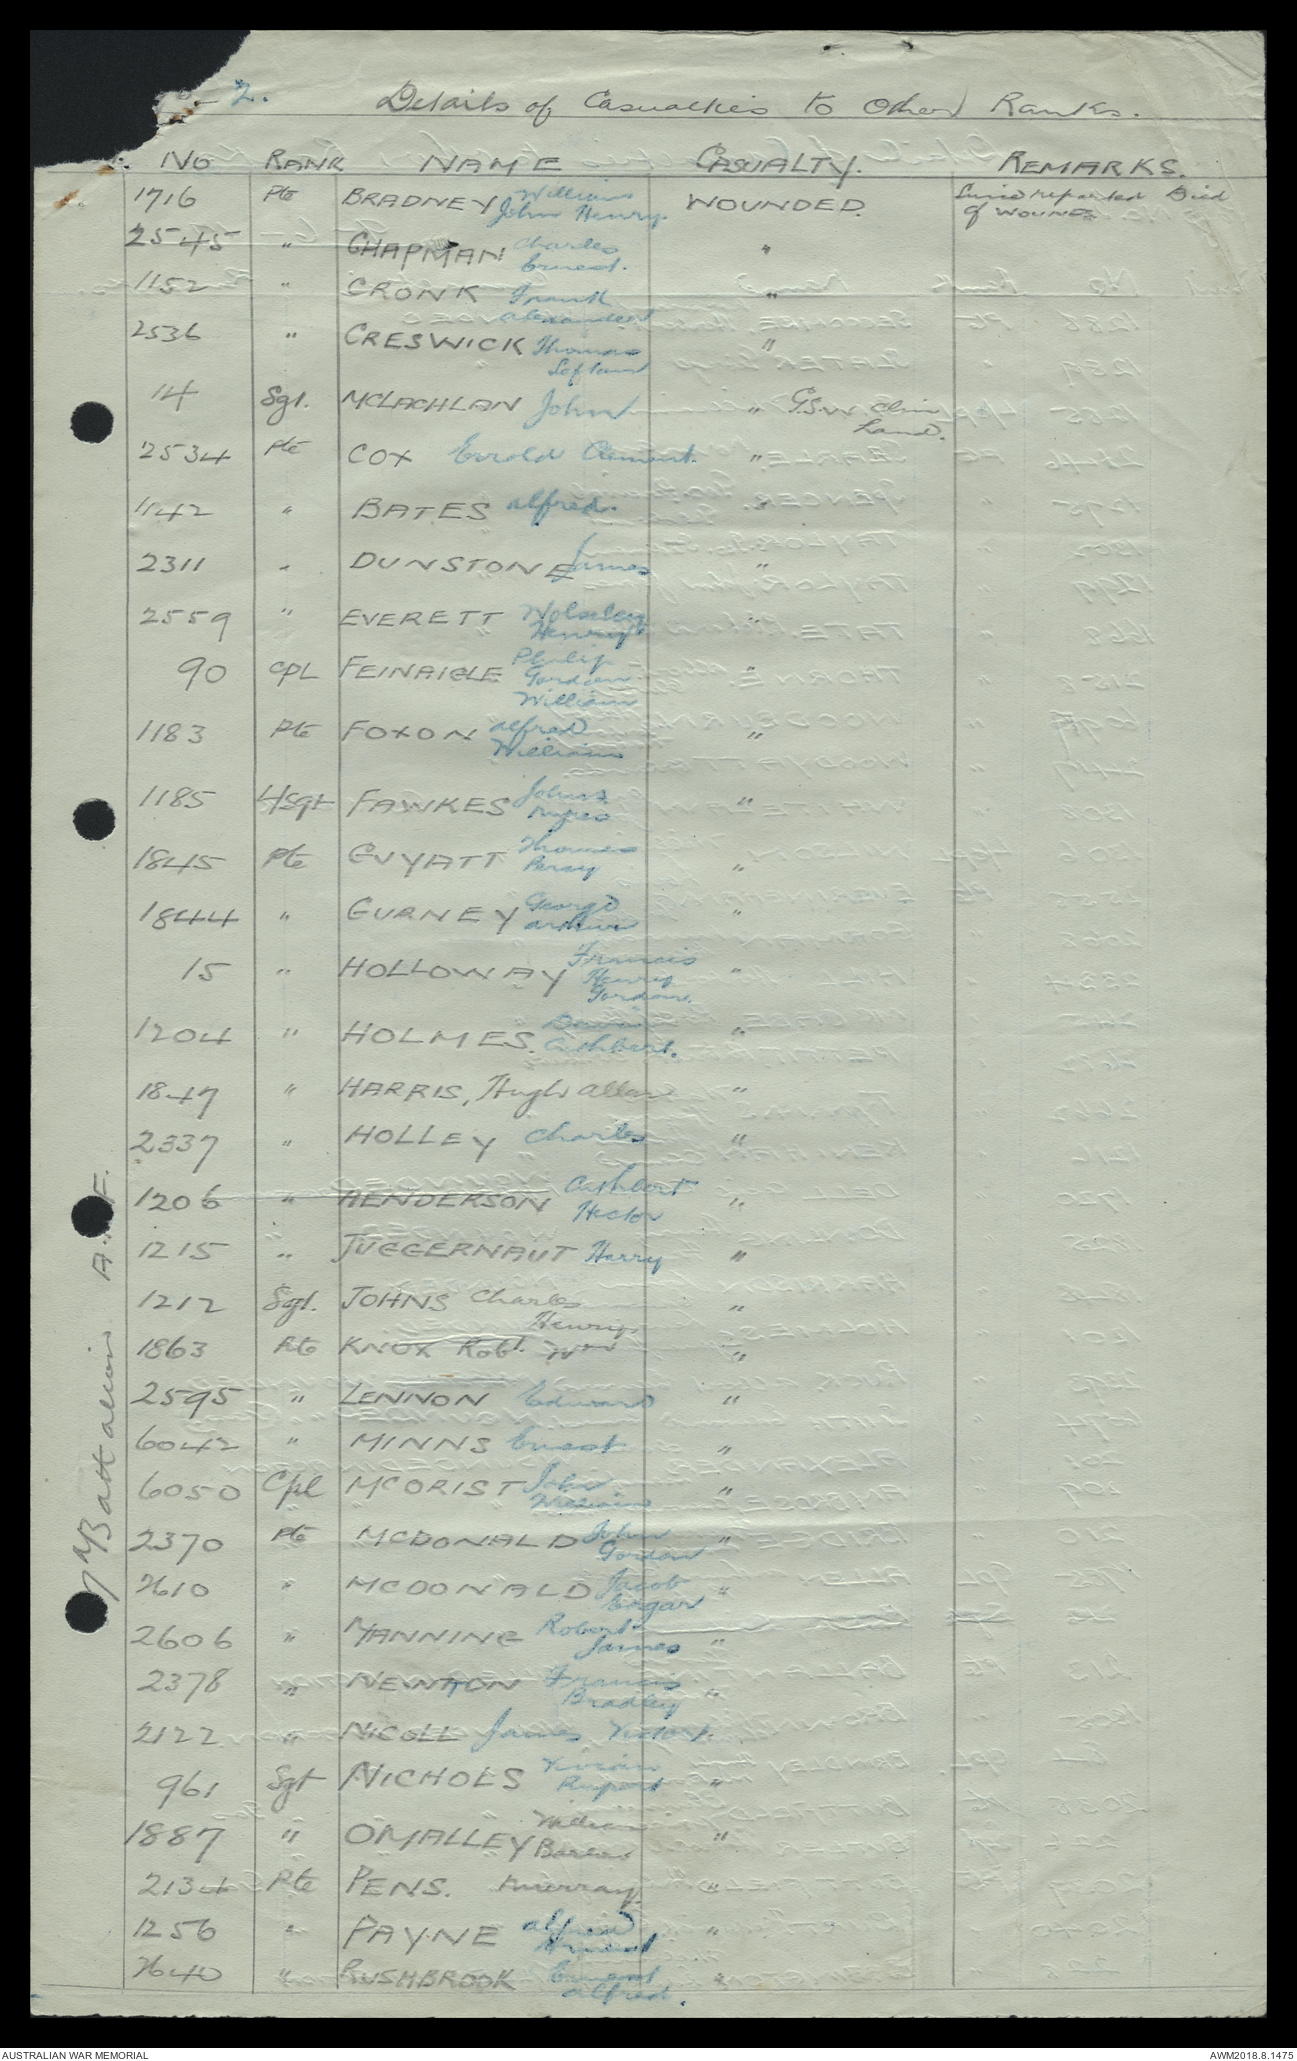 2. Details of Casualties to Other Ranks.
No RANK NAME CASUALTY. REMARKS.
1716 Pte BRADNEY William John Henry. WOUNDED. Since reported Died of WOUNDS
2545 " CHAPMAN Charles Ernest. "
1152 " CRONK Frank Alexander "
2536 " CRESWICK Thomas "
14 Sgt. MCLACHLAN John " G.S.W. Chin hand.
2534 Pte COX Errold Clement. "
1142 " BATES Alfred. "
2311 " DUNSTONE James "
2559 " EVERETT Wolseley Henry "
90 CPL FEINAIGLE Philip Gordon William "
1183 Pte FOXON Alfred William "
1185 L/Sgt FAWKES "
1845 Pte GUYATT Thomas Percy "
1844 " GURNEY George Arthur "
15 " HOLLOWAY Francis Henry Gordon. "
1204 " HOLMES. Cuthbert. "
1847 " HARRIS, Hugh Allan "
2337 " HOLLEY Charles "
1206 " HENDERSON Cuthbert Hector "
1215 " JUGGERNAUT Harry "
1212 Sgt. JOHNS Charles Henry. "
1863 Pte KNOX Robt. Wm "
2595 " LENNON Edward "
6042 " MINNS Ernest "
6050 Cpl MCORIST John William "
2370 Pte MCDONALD John Gordon "
2610 " MCDONALD Jacob Edgar "
2606 " MANNING Robert James "
2378 " NEWTON Francis Bradley "
2122 " NICOLL James Victor.
961 Sgt NICHOLS Vivian Rupert "
1887 " OMALLEY William "
2134 Pte PENS. Murray "
1256 " PAYNE Alfred Ernest "
2640 " RUSHBROOK Ernest Alfred. "
7 Battalion A.I.F.
AUSTRALIAN WAR MEMORIAL
AWM2018.8.1475